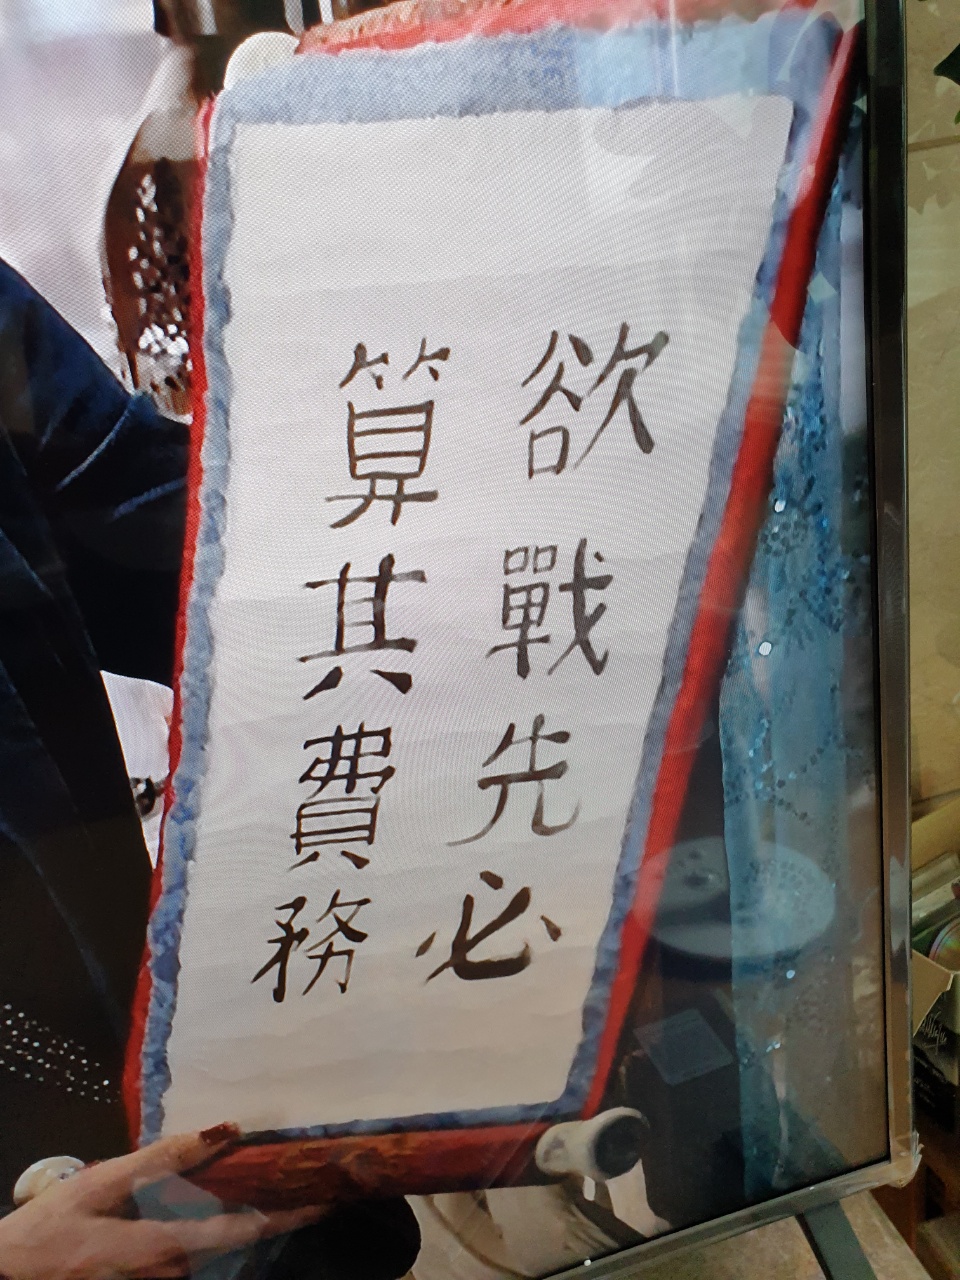 欲戰先必
算其費務